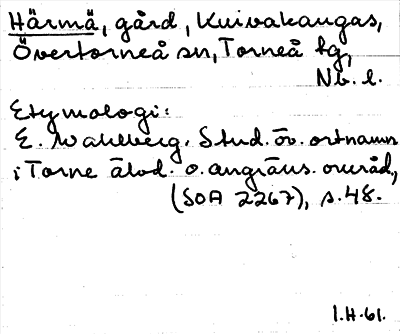 Härmä, gård, Kuivakangas,
Övertorneå sn, Torneå tg,
Nb. l.
Etymologi:
E. Wahlberg. Stud. öv. ortnamn
i Torne älvd. o. angräns. områd.,
(SOA 2267), s. 48.
I.H-61.